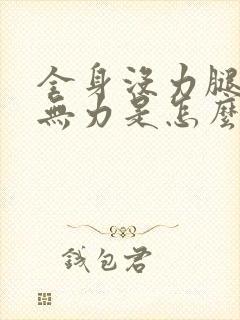 全身沒力腿
無力是怎麼
錢包君